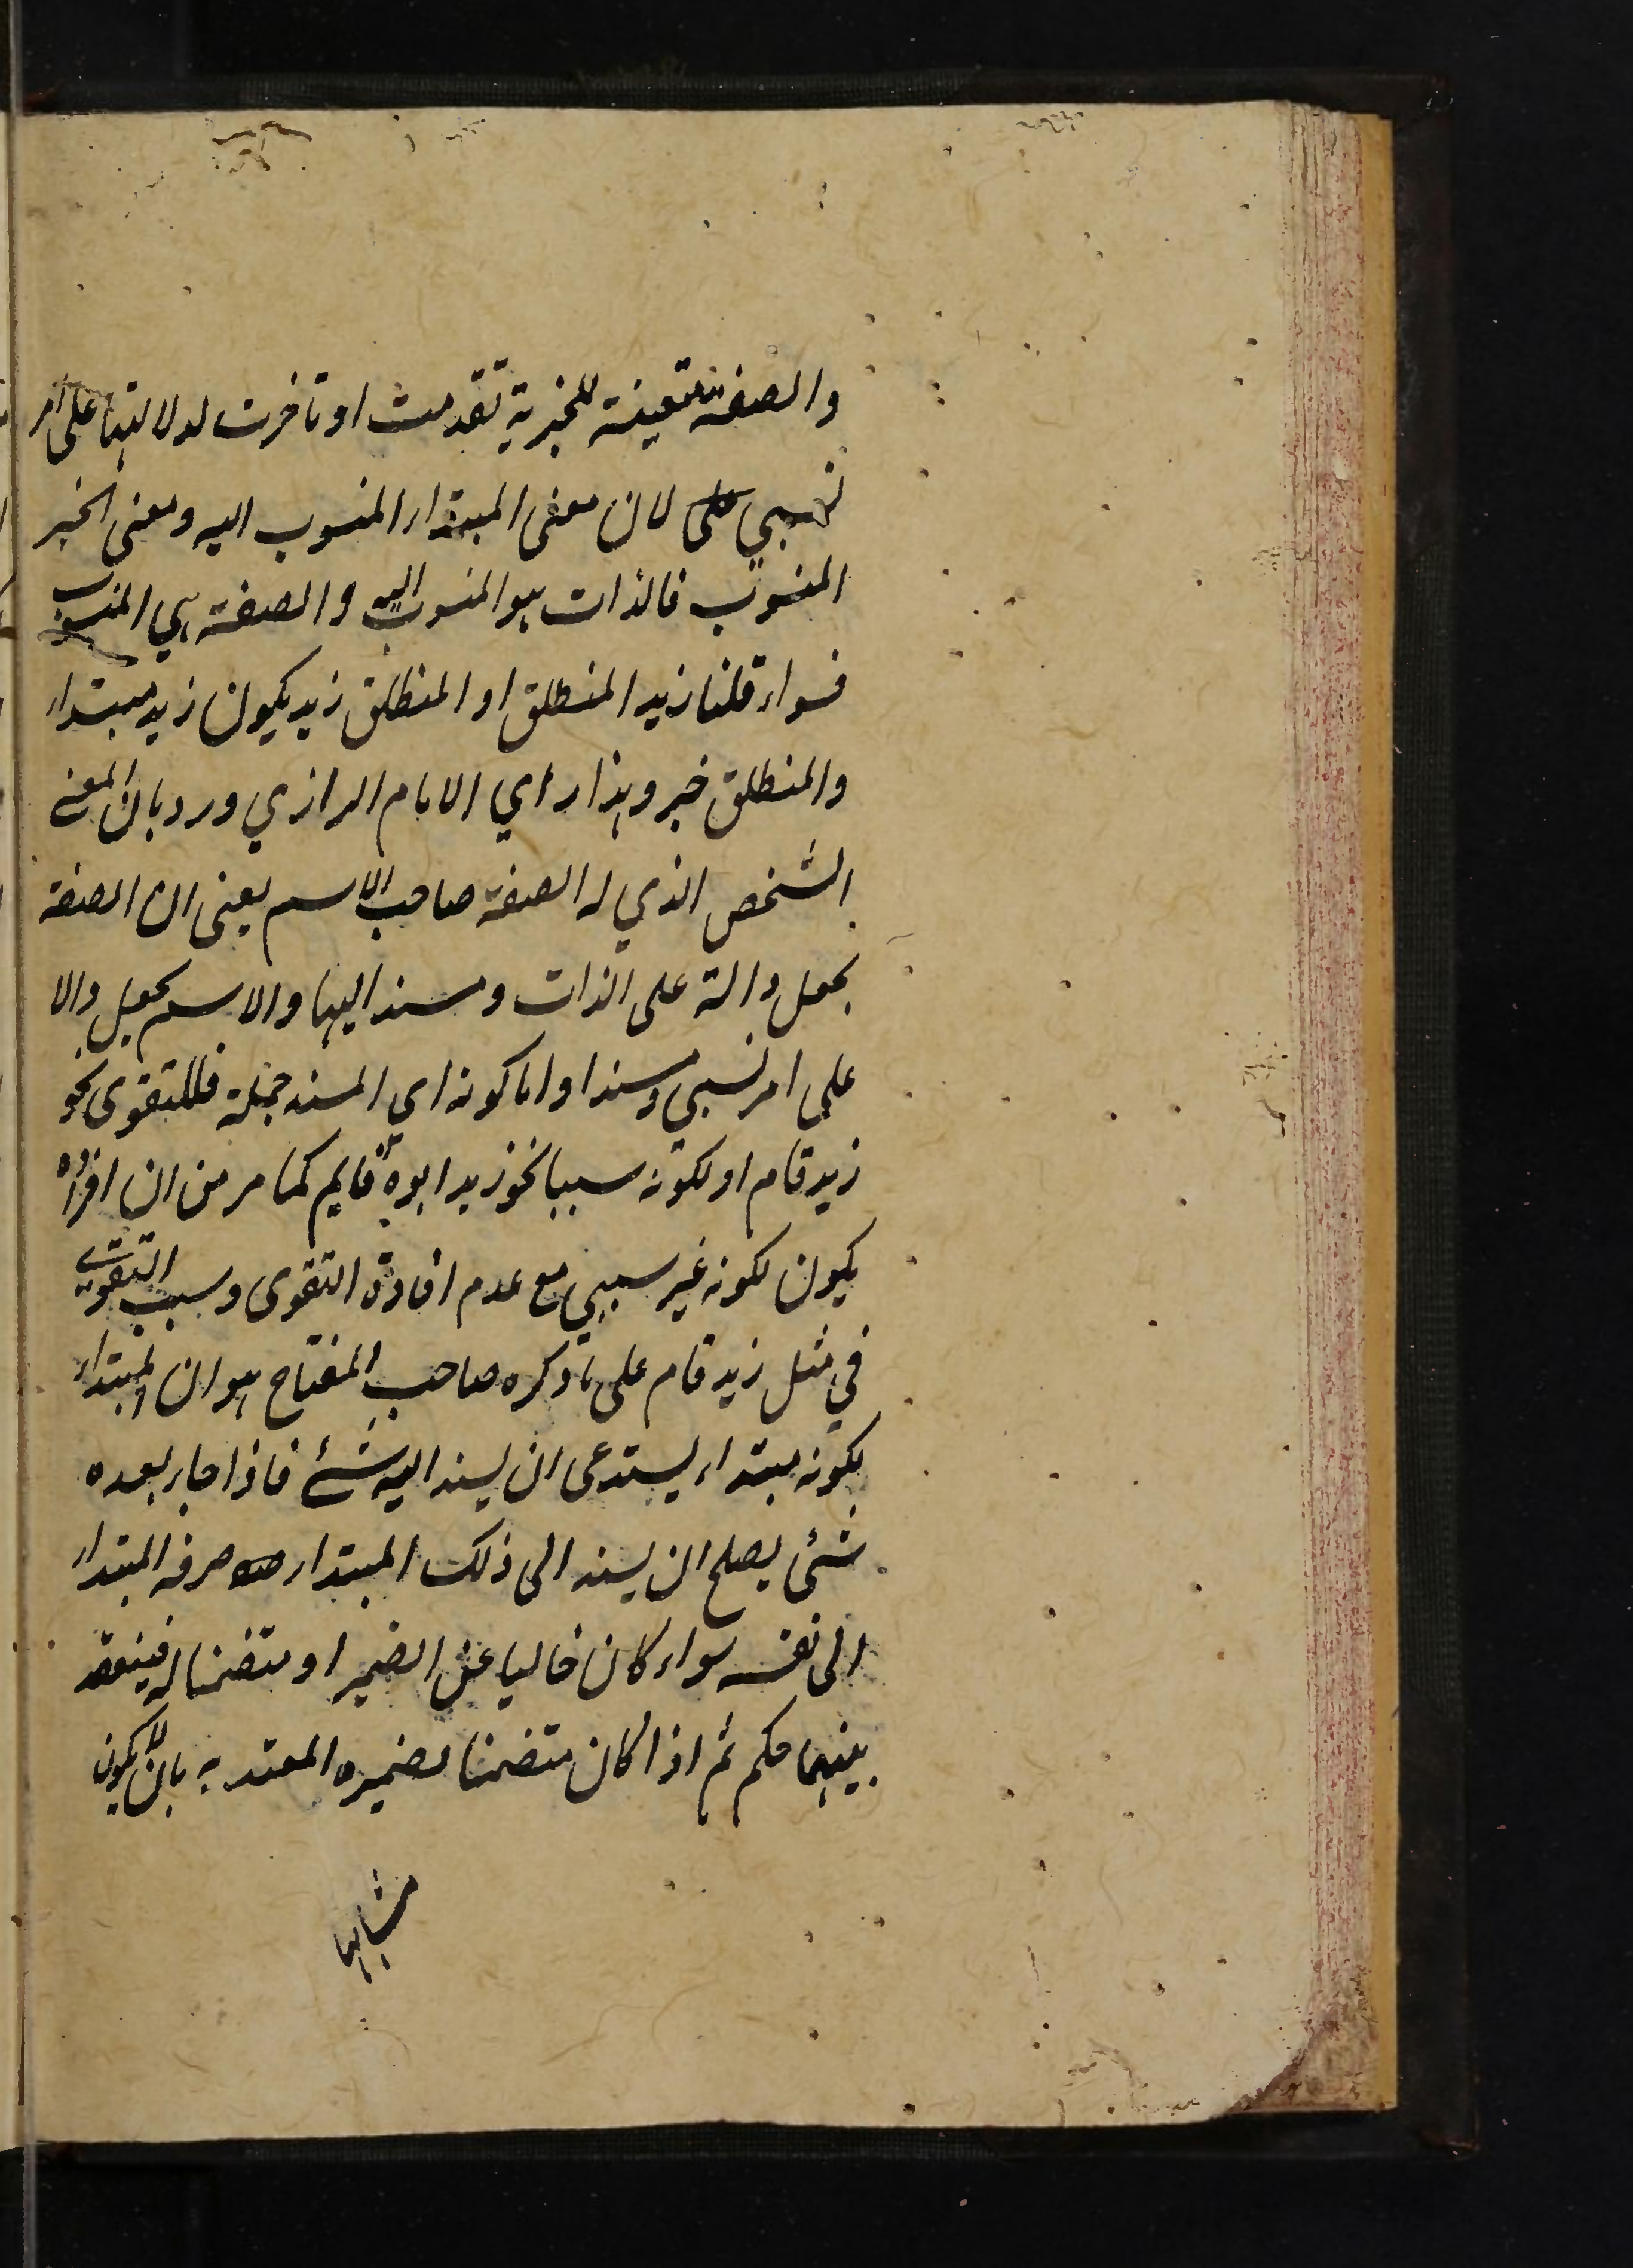 والصفة متعينة للخبرية تقدمت او تاخرت لدلالتها على امر
نسبي لان معنى المبتداء المنسوب اليه ومعنى الخبر
المنسوب فالذات هو المنسوب اليه والصفة هي المنسوب
فسواء قلنا زيد المنطلق او المنطلق زيد يكون زيد مبتداء
والمنطلق خبر وهذا رأي الامام الرازي ورد بان المعنى
الشخص الذي له الصفة صاحب الاسم يعنى ان الصفة
تجعل دالة على الذات ومسند اليها والاسم يجعل دالا
على امر نسبي ومسندا واما كونه اي المسند جملة فللتقوى نحو
زيد قام او لكونه سببيا نحو زيد ابوه قايم كما مر من ان افراده
يكون لكونه غير سببي مع عدم افادة التقوى وسبب التقوى
في مثل زيد قام على ما ذكره صاحب المفتاح هو ان المبتداء
لكونه مبتداء يستدعى ان يسند اليه شئ فاذا جاء بعده
شئى يصلح ان يسند الى ذلك المبتداء صرفه المبتداء
الى نفسه سواء كان خاليا عن الضمير او متضمنا له فينعقد
بينهما حكم ثم اذا كان متضمنا لضميره المعتد به بان لا يكون
مشابها